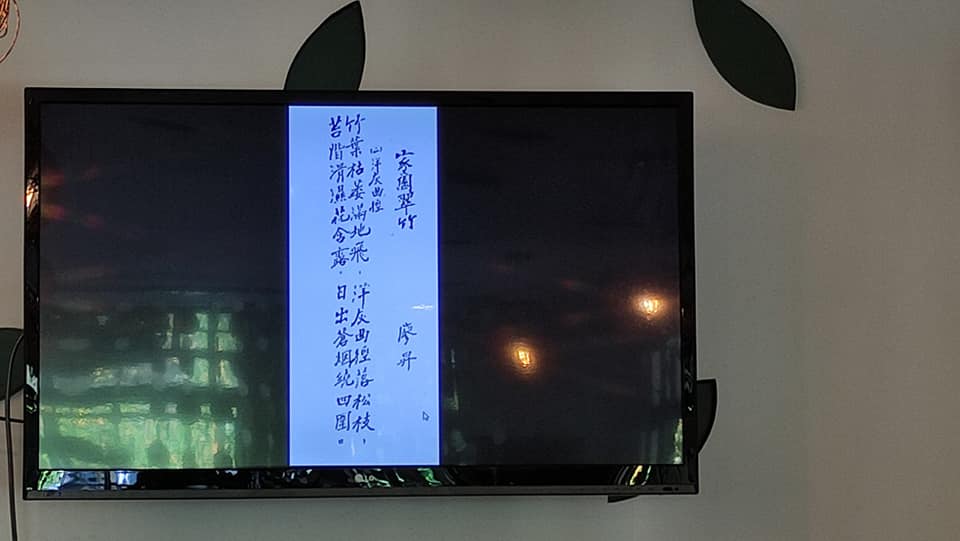 家園翠竹
廖昇
山洋灰曲徑
竹葉枯萎滿地飛,洋灰曲徑落松枝,
苔階滑濕花含露,日出蒼烟繞四圍。